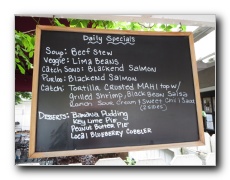 Daily Specials
Soup: Beef Stew
Veggie: Lima Beans
Catch Sand: Blackend Salmon
Purloo: Blackend Salmon
Catch: Tortilla Crusted MAHI top w/
grilled Shrimp, Black Bean Salsa
Ranch Sour Cream & Sweet Chili Sauce
(2 sides)
Desserts: Banana Pudding
Key Lime Pie
Peanut Butter Pie
Local Blueberry Cobbler